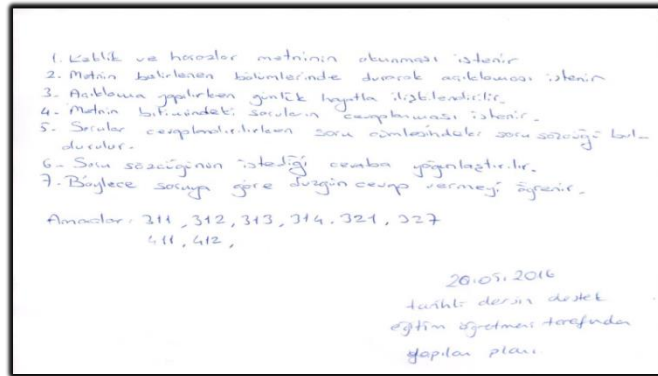 1. Keklik ve horozlar metninin okunması istenir
2. Metnin belirlenen bölümlerinde durarak açıklaması istenir
3. Açıklama yapılırken günlük hayatla ilişkilendirilir.
4. Metnin bitimindeki soruların cevaplaması istenir.
5. Sorular cevaplandırılırken soru cümlesindeki soru sözcüğü bul-
durulur.
6- Soru sözcüğünün istediği cevaba yoğunlaştırılır.
7. Böylece soruya göre düzgün cevap vermeyi öğrenir.
Amaçlar: 311, 312, 313, 314. 321, 327
411, 412,
2016
tarihli dersin destek
eğitim öğretmeni tarafından
yapılan planı